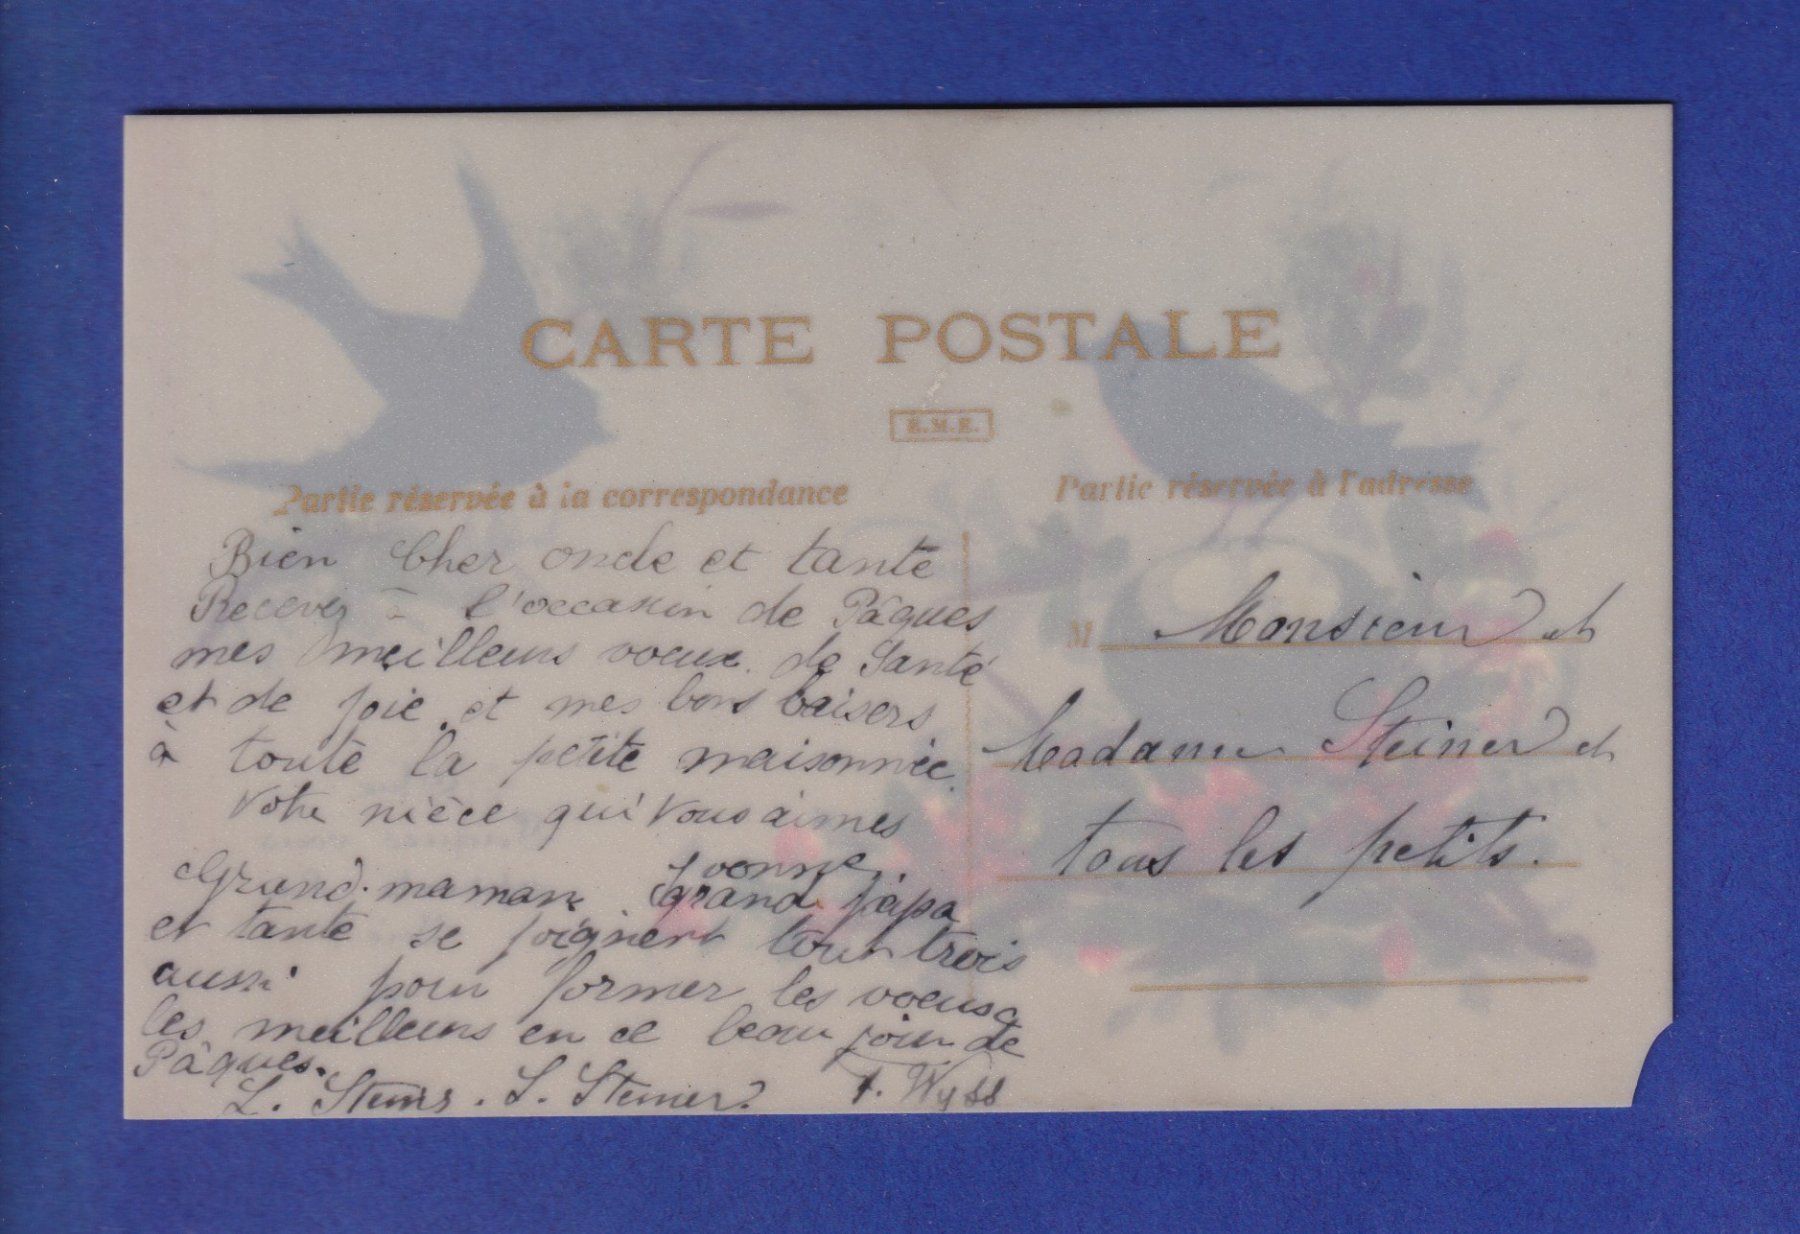 CARTE POSTALE
E.M.E.
Partie réservée à la correspondance
Bien Cher oncle et tante
Recevez à l'occasion de Pâques
mes meilleurs voeux de Santé
et de joie et mes bons baisers
à toute la petite maisonnée
Votre nièce qui vous aimes
Yvonne
Grand-maman Grand papa
et tante se joignent tout trois
aussi pour former les voeux
les meilleurs en ce beau jour de
Pâques.
L. Steiner. S. Steiner
Wyss
Partie réservée à l'adresse
M Monsieur et
Madame Steiner et
tous les petits.